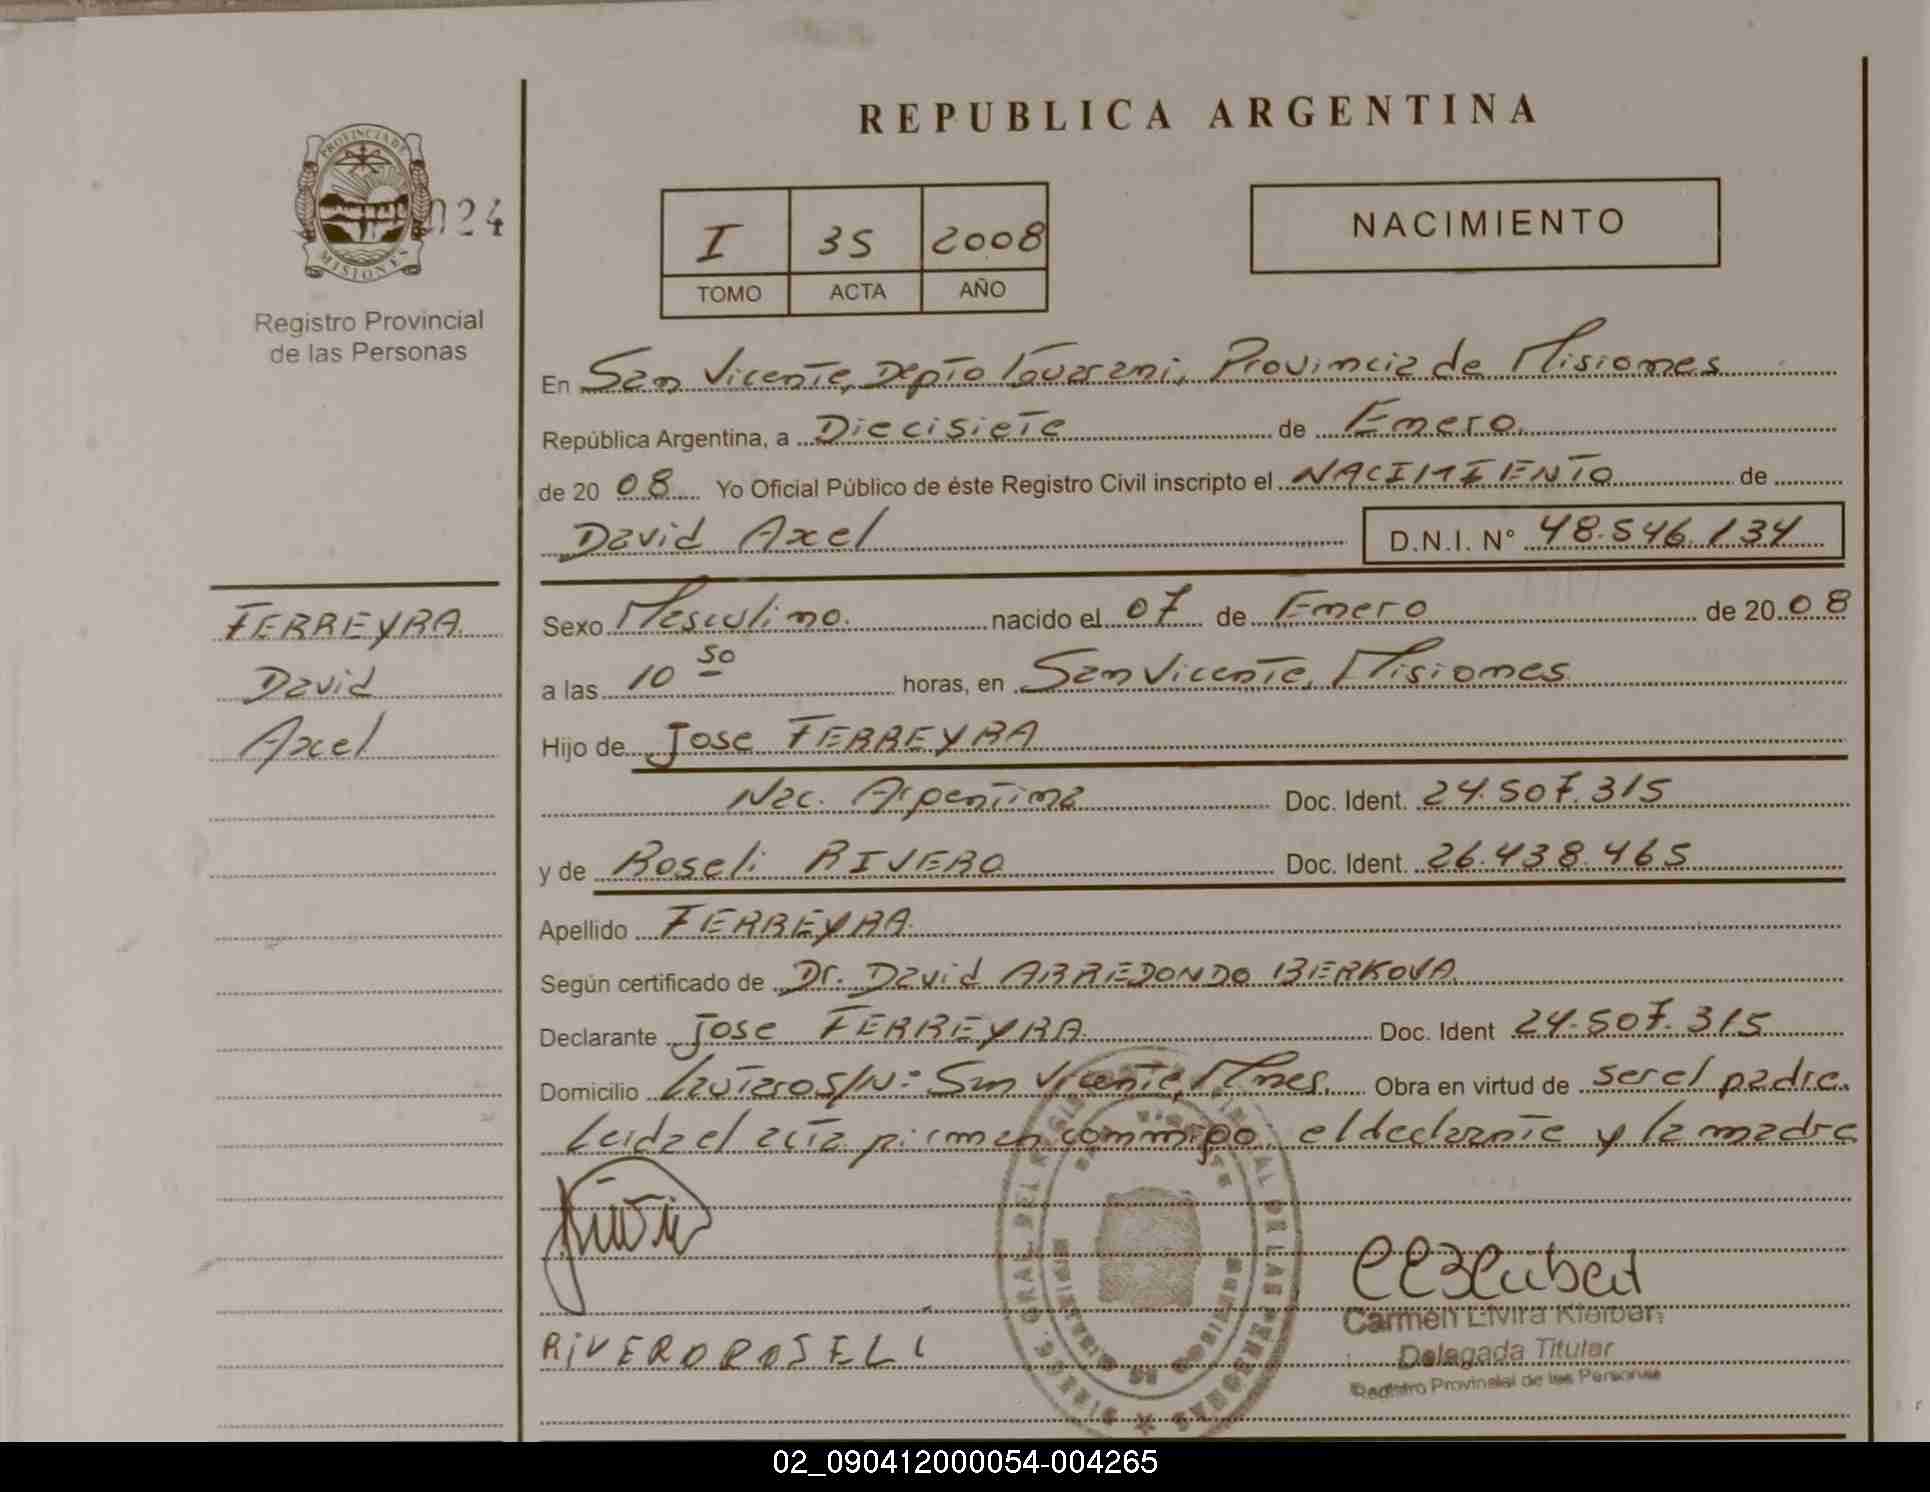 REPUBLICA ARGENTINA
PROVINCIA DE
MISIONES
024
Registro Provincial
de las Personas
I 35 2008
TOMO ACTA AÑO
NACIMIENTO
En San Vicente, Depto Guarani, Provincia de Misiones
República Argentina, a Diecisiete de Enero
de 2008 Yo Oficial Público de éste Registro Civil inscripto el NACIMIENTO de
David Axel D.N.I. N° 48.546.134
FERREYRA
David
Axel
Sexo Masculino. nacido el 07 de Enero de 2008
a las 10 50 horas, en San Vicente, Misiones
Hijo de Jose FERREYRA
Nac. Argentina Doc. Ident. 24.507.315
y de Roseli RIVERO Doc. Ident. 26.438.465
Apellido FERREYRA
Según certificado de Dr. David ARREDONDO BERKOVA
Declarante Jose FERREYRA Doc. Ident 24.507.315
Domicilio S/N: San Vicente, Mnes. Obra en virtud de ser el padre.
Leida el acta firman conmigo el declarante y la madre
RIVERO ROSELI
Carmen Elvira Kleiber
Delegada Titular
Registro Provincial de las Personas
02_090412000054-004265